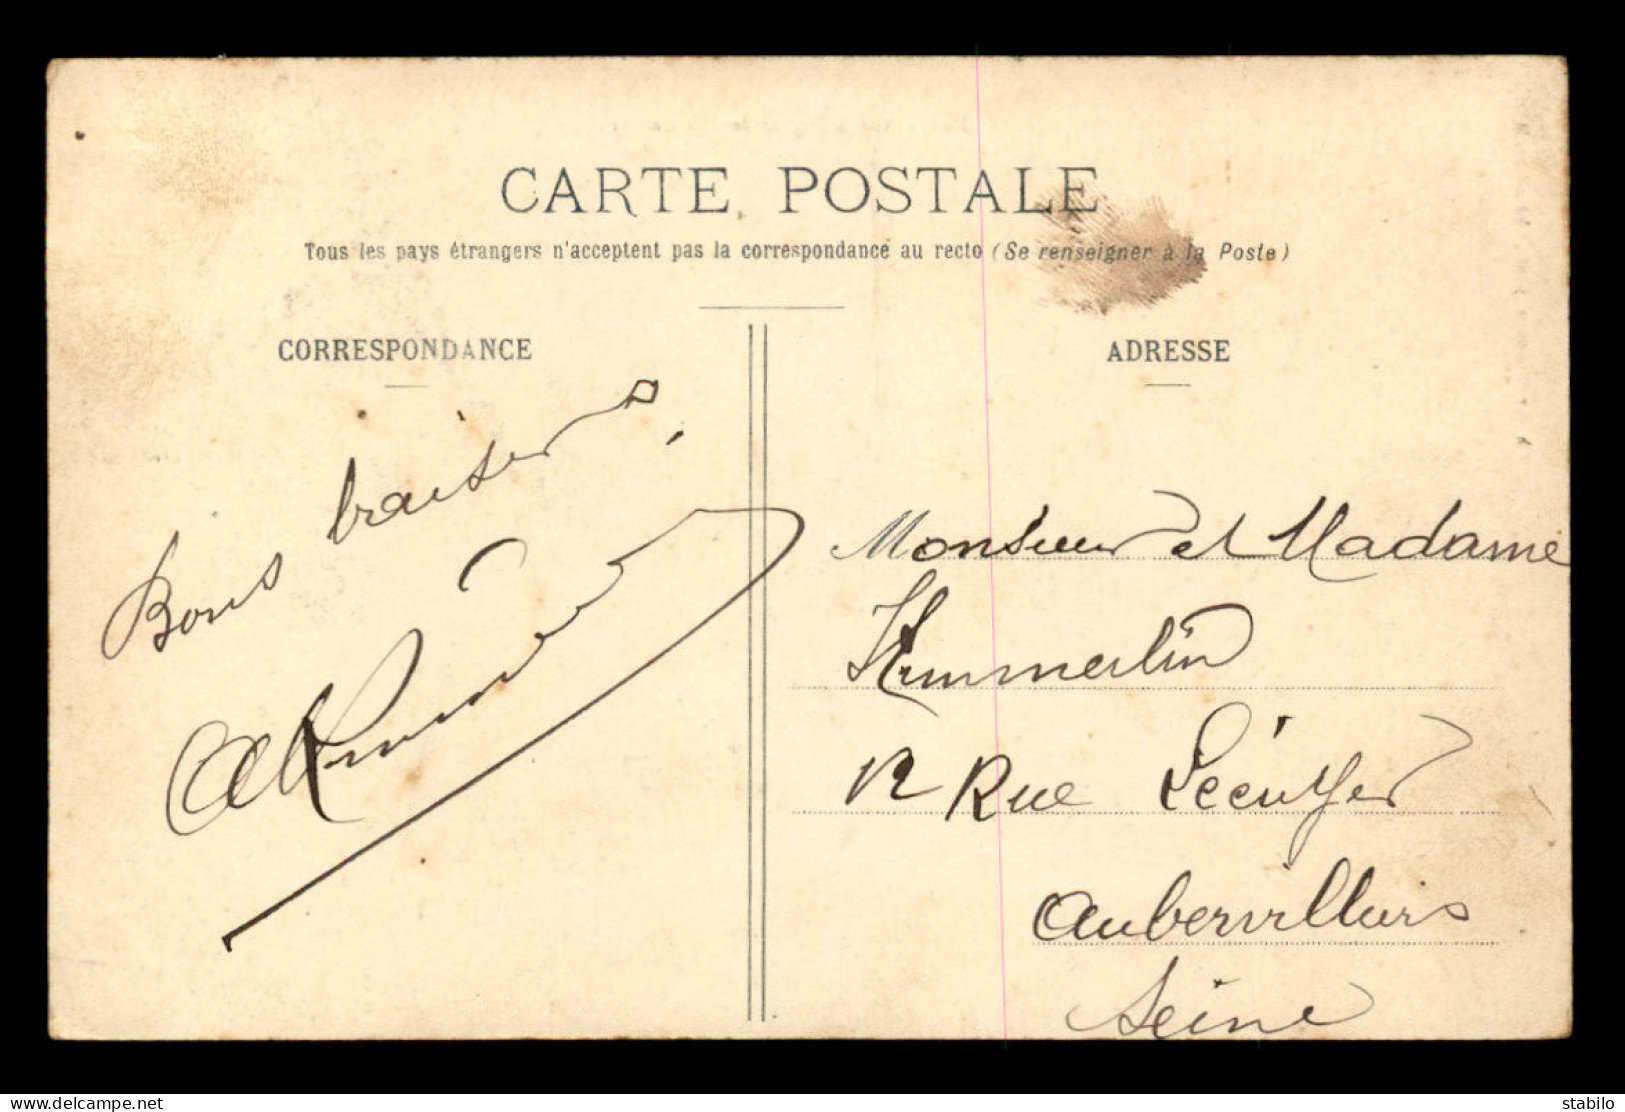 CARTE POSTALE
Tous les pays étrangers n'acceptent pas la correspondance au recto (Se renseigner à la Poste)
CORRESPONDANCE
Bons baisers
ADRESSE
Monsieur et Madame
12 Rue
Aubervilliers
Seine
delcampe.net
stabilo